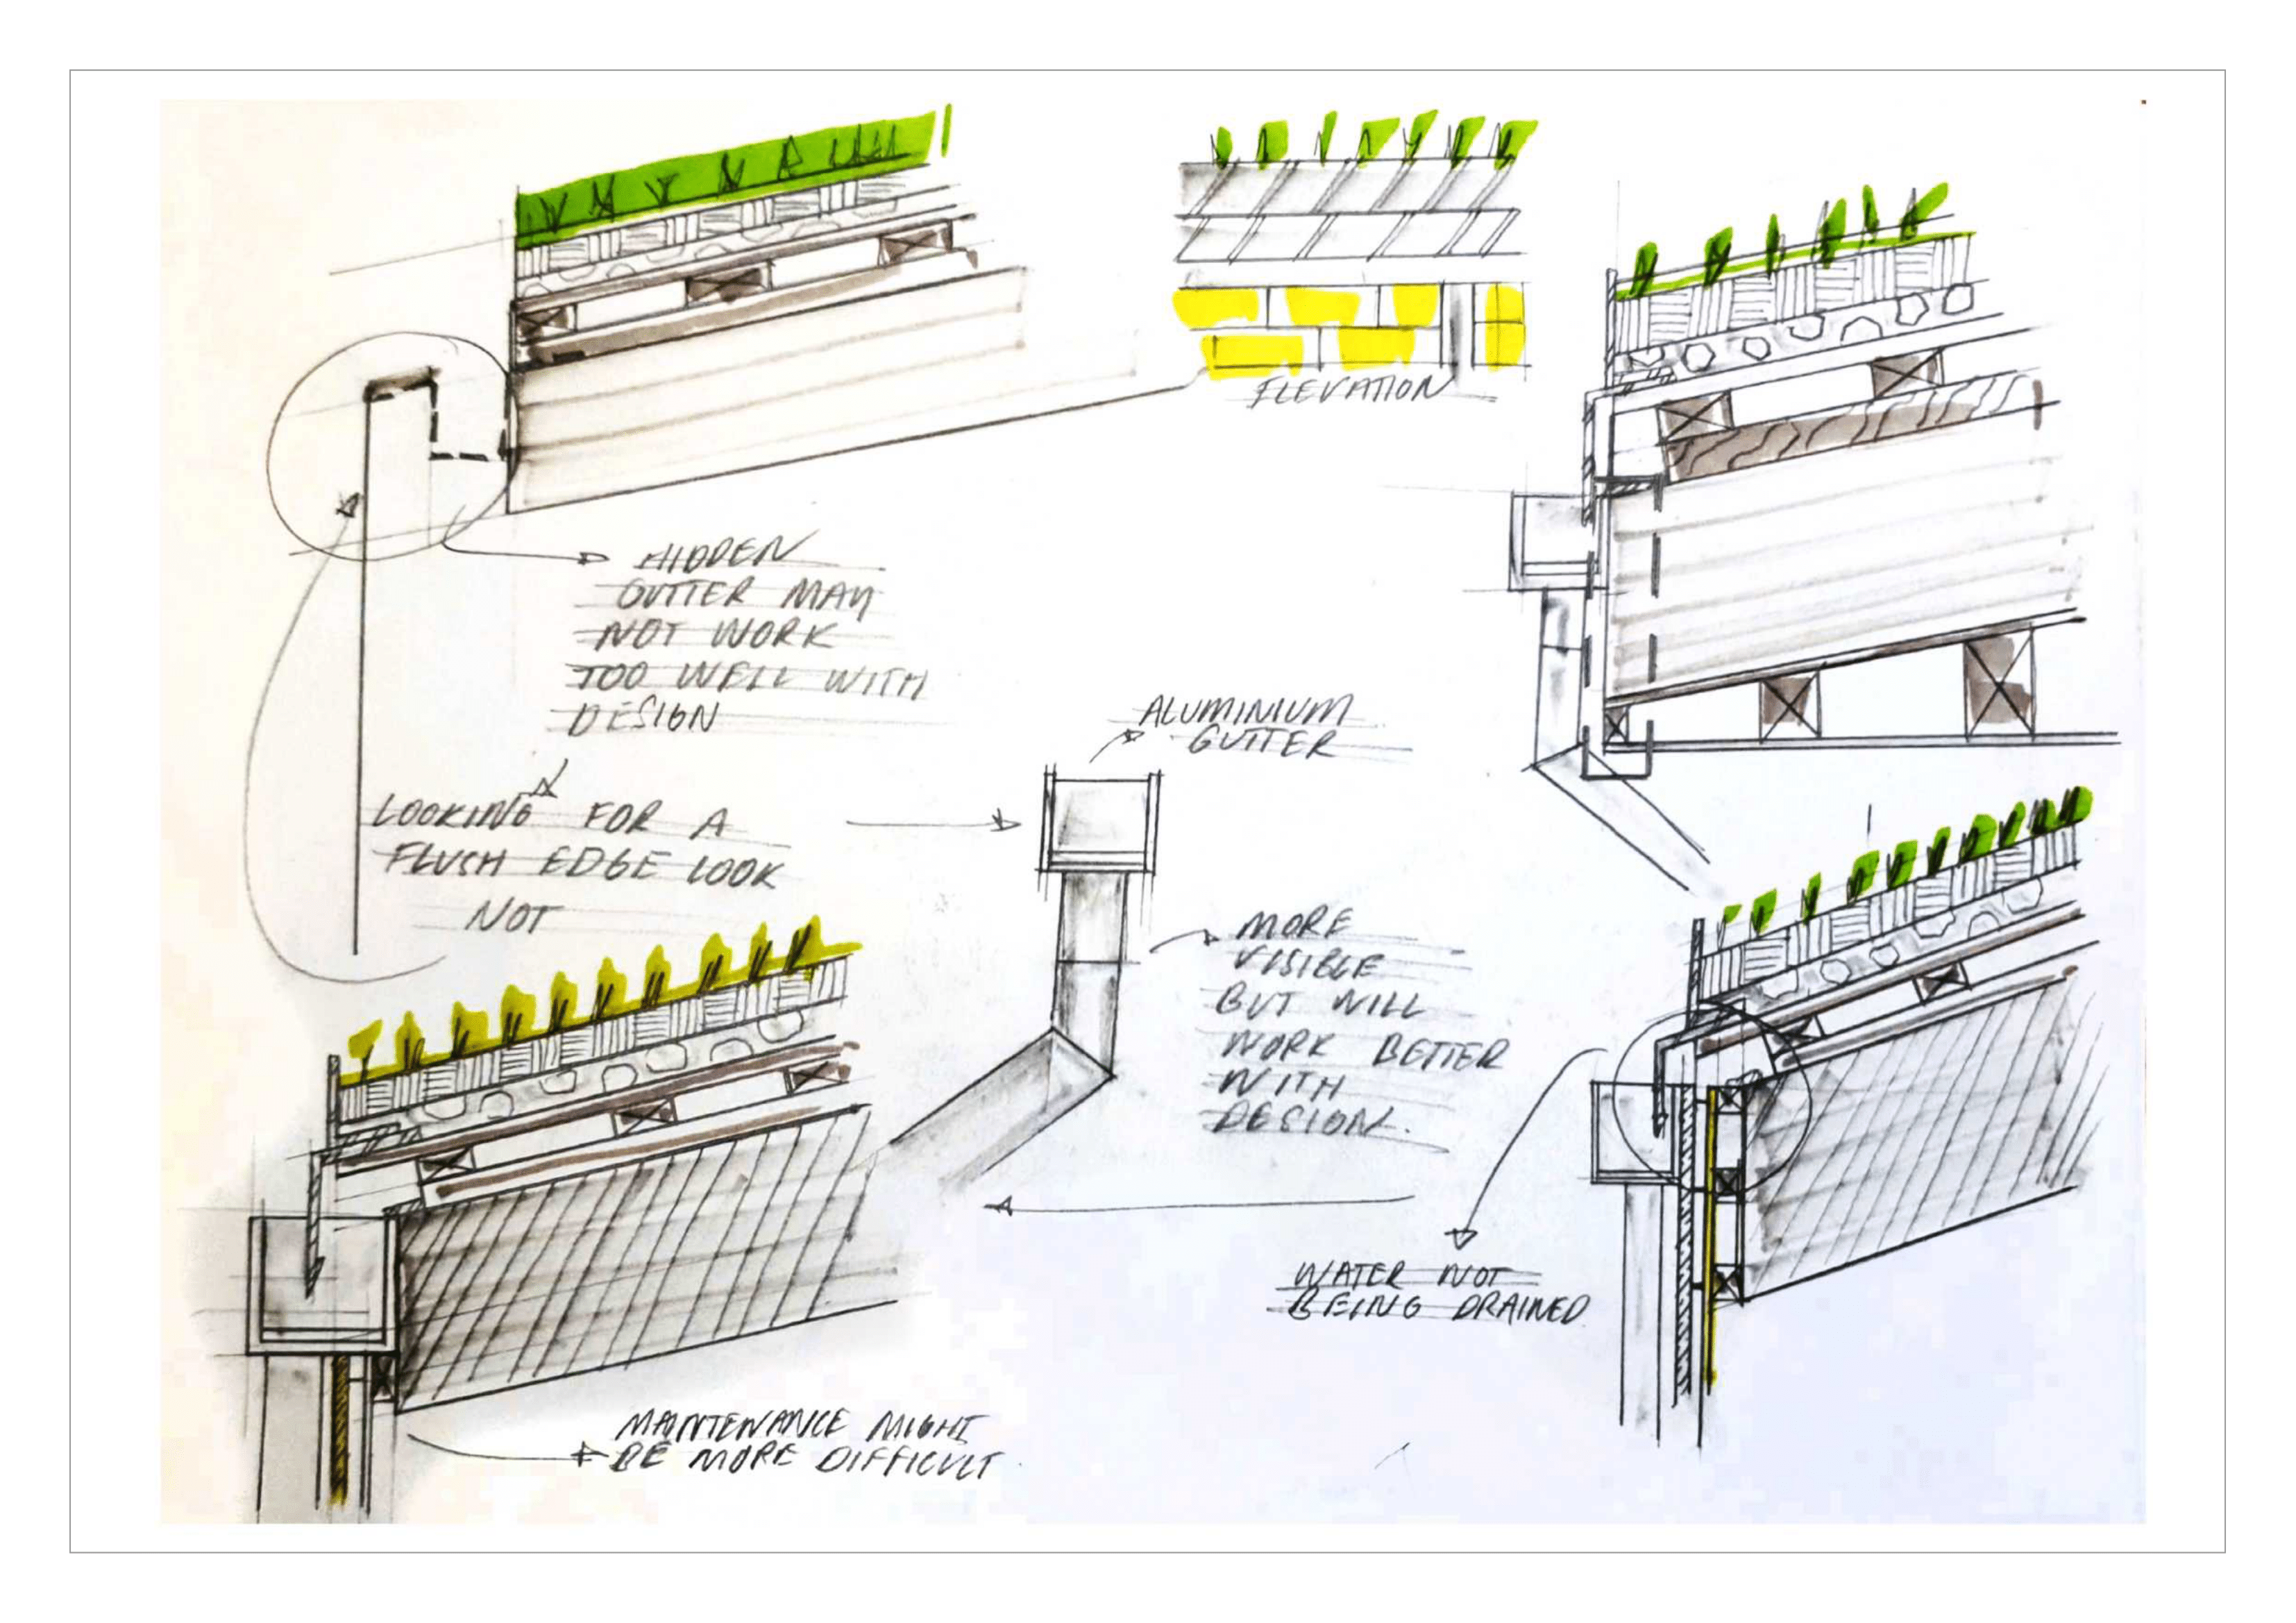 ELEVATION
HIDDEN
GUTTER MAY
NOT WORK
TOO WELL WITH
DESIGN
LOOKING FOR A
FLUSH EDGE LOOK
NOT
ALUMINIUM
GUTTER
MORE
VISIBLE
BUT WILL
WORK BETTER
WITH
DESIGN.
WATER NOT
BEING DRAINED
MAINTENANCE MIGHT
BE MORE DIFFICULT